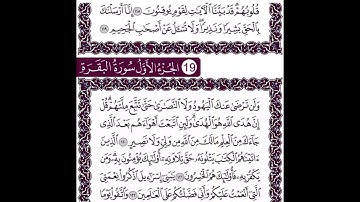 قُلُوبُهُمْ قَدْ بَيَّنَّا الْآيَاتِ لِقَوْمٍ يُوقِنُونَ ١١٨ إِنَّا أَرْسَلْنَاكَ
بِالْحَقِّ بَشِيرًا وَنَذِيرًا وَلَا تُسْأَلُ عَنْ أَصْحَابِ الْجَحِيمِ ١١٩
19 الجُزْءُ الأَوَّلُ سُورَةُ البَقَرَةِ
وَلَن تَرْضَىٰ عَنكَ الْيَهُودُ وَلَا النَّصَارَىٰ حَتَّىٰ تَتَّبِعَ مِلَّتَهُمْ قُلْ
إِنَّ هُدَى اللَّهِ هُوَ الْهُدَىٰ وَلَئِنِ اتَّبَعْتَ أَهْوَاءَهُم بَعْدَ الَّذِي
جَاءَكَ مِنَ الْعِلْمِ مَا لَكَ مِنَ اللَّهِ مِن وَلِيٍّ وَلَا نَصِيرٍ ١٢٠ الَّذِينَ
آتَيْنَاهُمُ الْكِتَابَ يَتْلُونَهُ حَقَّ تِلَاوَتِهِ أُولَٰئِكَ يُؤْمِنُونَ بِهِ وَمَن
يَكْفُرْ بِهِ فَأُولَٰئِكَ هُمُ الْخَاسِرُونَ ١٢١ يَا بَنِي إِسْرَائِيلَ اذْكُرُوا نِعْمَتِيَ
الَّتِي أَنْعَمْتُ عَلَيْكُمْ وَأَنِّي فَضَّلْتُكُمْ عَلَى الْعَالَمِينَ ١٢٢ وَاتَّقُوا يَوْمًا